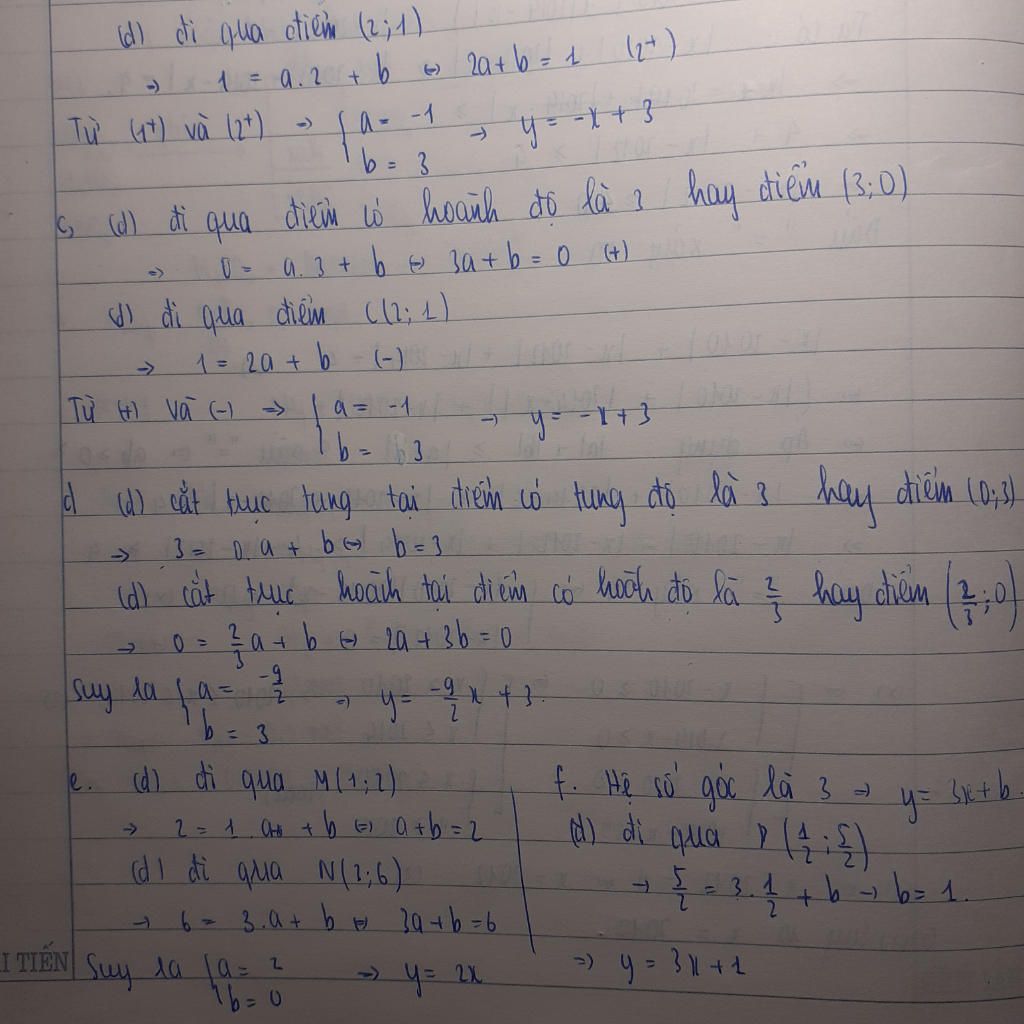 (d) đi qua điểm (2;1)
⇒ 1 = a.2 + b ⇔ 2a+b = 1 (2+)
Từ (1+) và (2+) ⇒ { a = -1 → y = -x + 3
b = 3
c, (d) đi qua điểm có hoành độ là 3 hay điểm (3;0)
⇒ 0 = a.3 + b ⇔ 3a+b = 0 (+)
(d) đi qua điểm C(2;1)
→ 1 = 2a + b (-)
Từ (+) và (-) ⇒ { a = -1 → y = -x+3
b = 3
d (d) cắt trục tung tại điểm có tung độ là 3 hay điểm (0;3)
⇒ 3 = 0.a + b ⇔ b = 3
(d) cắt trục hoành tại điểm có hoành độ là 2/3 hay điểm (2/3;0)
→ 0 = 2/3 a + b ⇔ 2a + 3b = 0
Suy ra { a = -9/2 ⇒ y = -9/2 x + 3.
b = 3
e. (d) đi qua M(1;2)
→ 2 = 1.a + b ⇔ a+b = 2
(d) đi qua N(3;6)
→ 6 = 3.a + b ⇔ 3a+b = 6
Suy ra { a = 2 ⇒ y = 2x
b = 0
f. Hệ số góc là 3 ⇒ y = 3x+b.
(d) đi qua P (1/2; 5/2)
→ 5/2 = 3.1/2 + b → b = 1.
⇒ y = 3x+1
I TIẾN